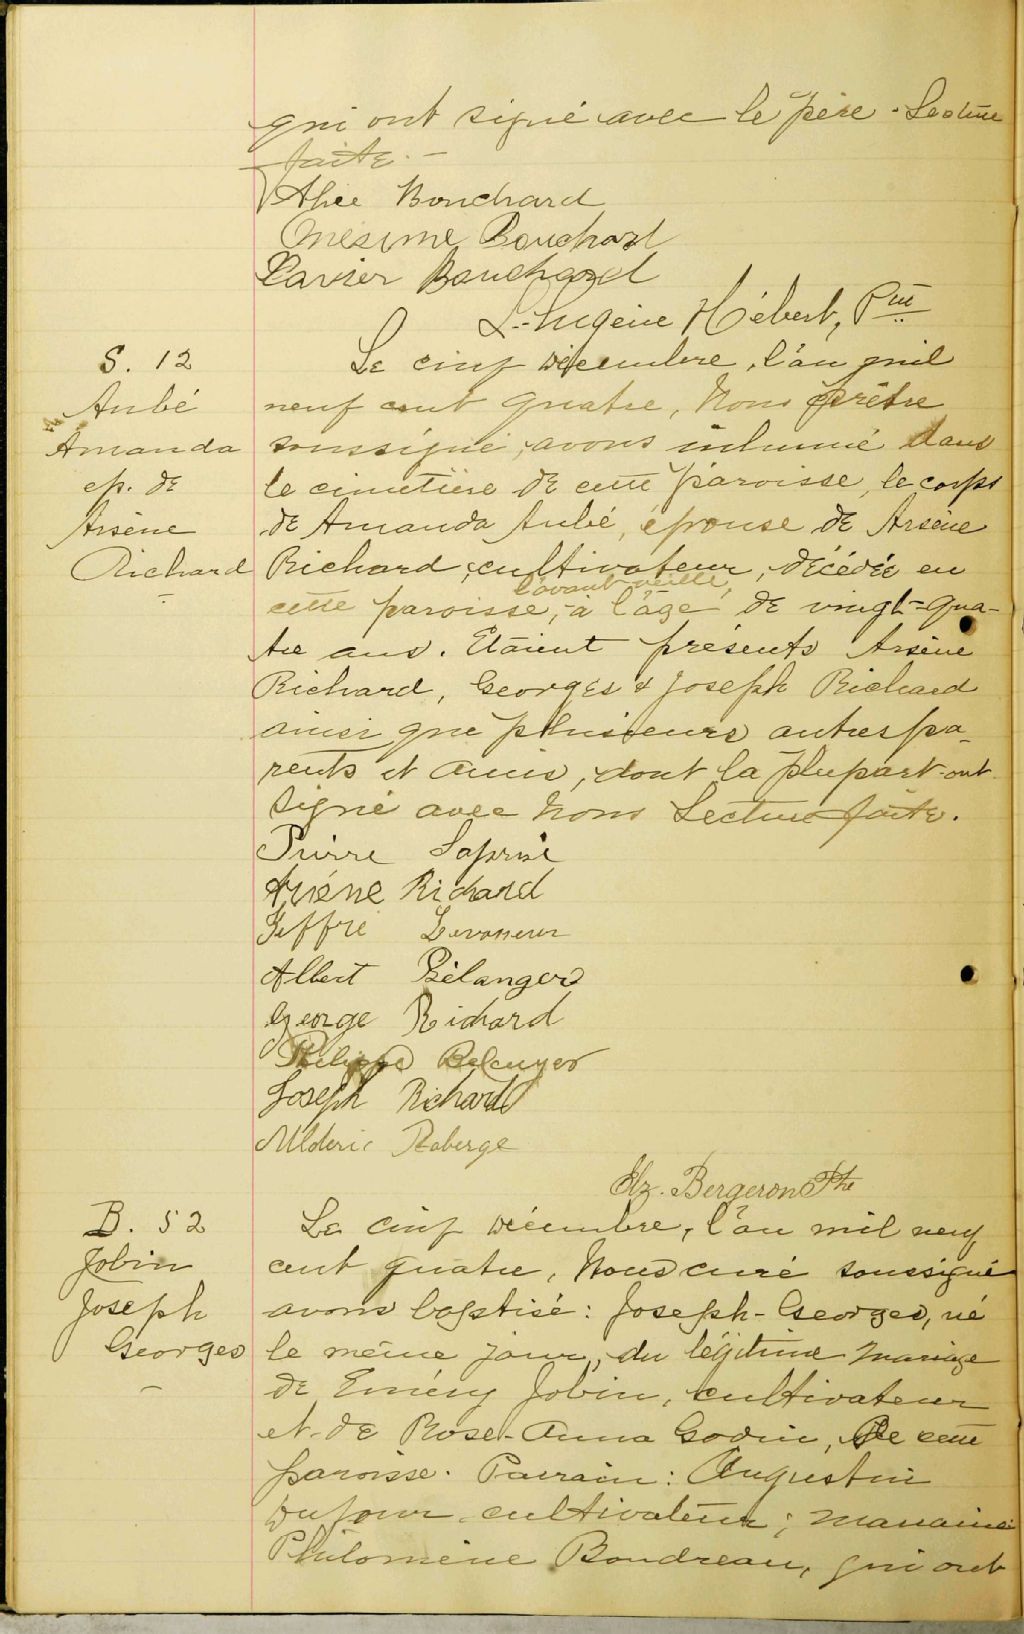 qui ont signé avec le père. Lecture
faite. —
Alice Bouchard
Onesime Bouchard
Xavier Bouchard
L.-Eugène Hébert, Ptre
S. 12
Aubé
Amanda
ep. de
Arsène
Richard
Le cinq décembre, l'an mil
neuf cent quatre, Nous prêtre
soussigné, avons inhumé dans
le cimetière de cette paroisse, le corps
de Amanda Aubé, épouse de Arsène
Richard, cultivateur, décédée en
l'avant-veille,
cette paroisse, à l'âge de vingt-qua-
tre ans. Etaient présents Arsène
Richard, Georges & Joseph Richard
ainsi que plusieurs autres pa-
rents et amis, dont la plupart ont
signé avec Nous Lecture faite.
Pierre Saprise
Arsène Richard
Jeffré Levasseur
Albert Bélanger
George Richard
Philippe
Joseph Richard
Alderic Roberge
Elz. Bergeron Ptre
B. 52
Jobin
Joseph
Georges
Le cinq décembre, l'an mil neuf
cent quatre, Nous curé soussigné
avons baptisé: Joseph-Georges, né
le même jour, du légitime mariage
de Eméry Jobin, cultivateur
et de Rose-Anna Godin, de cette
paroisse. Parrain: Augustin
Dufour, cultivateur; marraine
Philomène Boudreau, qui ont